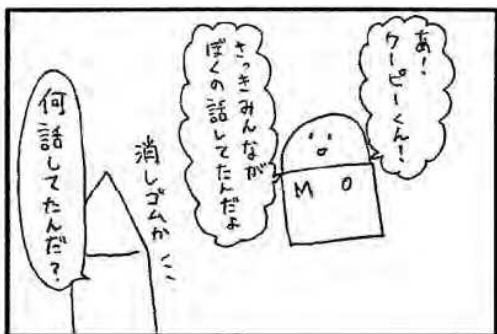 あ！
クーピーくん！
さっきみんなが
ぼくの話してたんだよ
MO
消しゴムか
何話してたんだ？